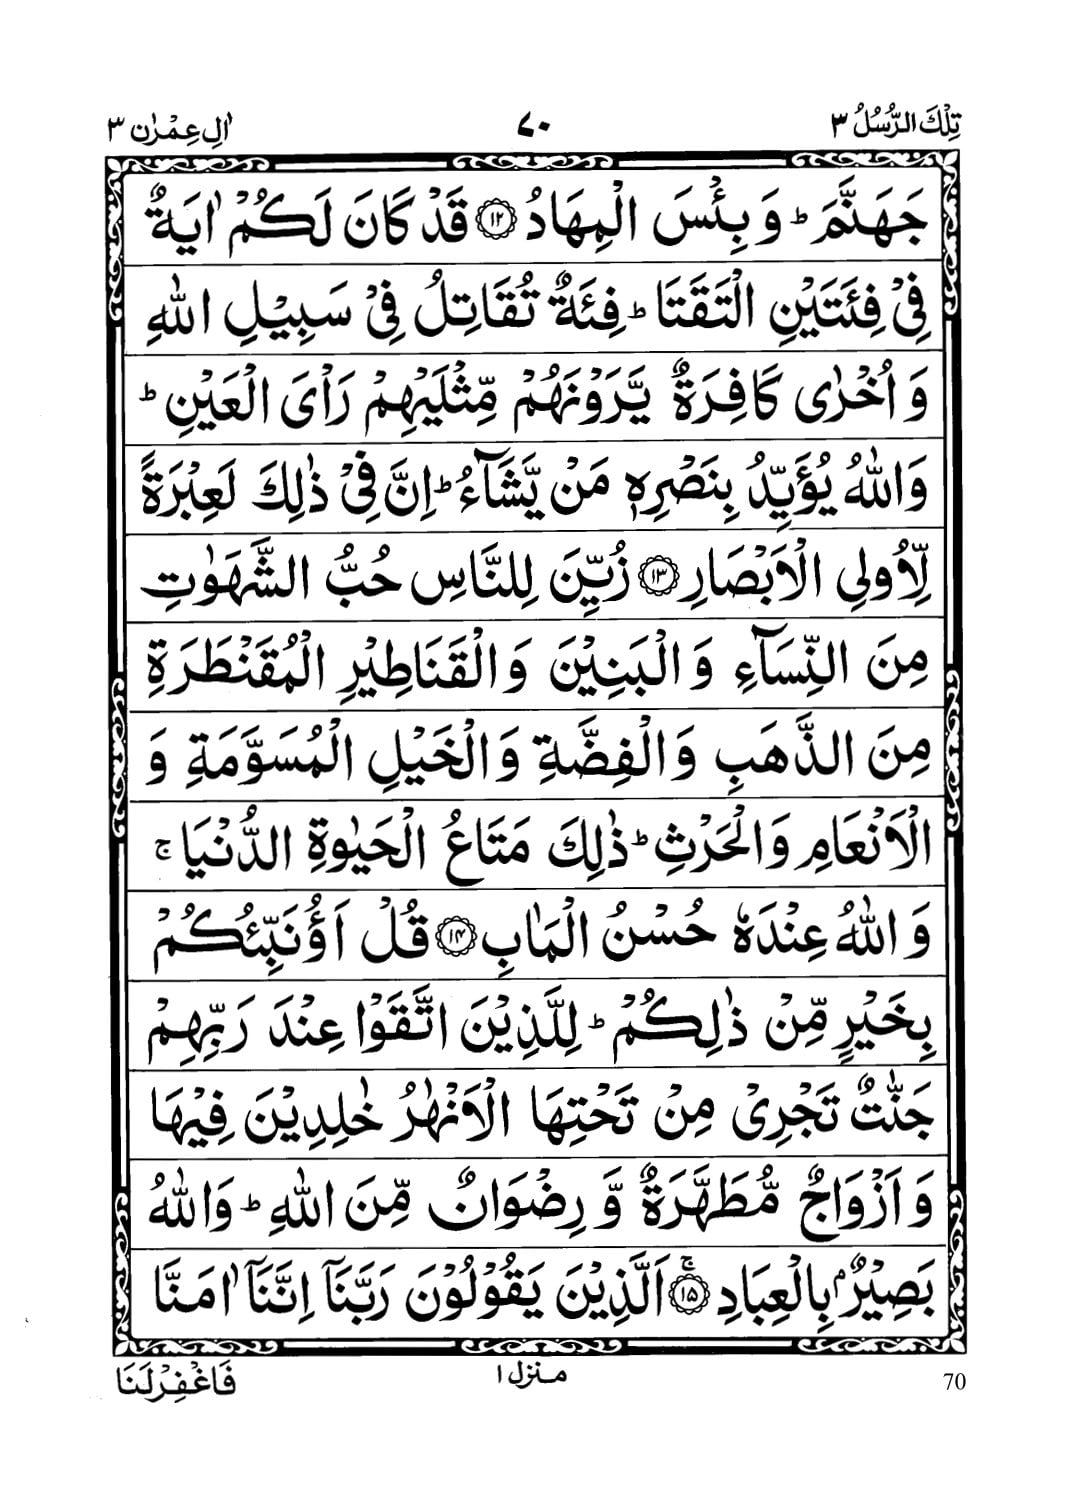 تِلْكَ الرُّسُلُ ٣
٧٠
اٰلِ عِمْرٰن ٣
جَهَنَّمَ ؕ وَ بِئْسَ الْمِهَادُ ﴿۱۲﴾ قَدْ كَانَ لَكُمْ اٰيَةٌ
فِيْ فِئَتَيْنِ الْتَقَتَا ؕ فِئَةٌ تُقَاتِلُ فِيْ سَبِيْلِ اللّٰهِ
وَ اُخْرٰى كَافِرَةٌ يَّرَوْنَهُمْ مِّثْلَيْهِمْ رَاْيَ الْعَيْنِ ؕ
وَاللّٰهُ يُؤَيِّدُ بِنَصْرِهٖ مَنْ يَّشَآءُ ؕ اِنَّ فِيْ ذٰلِكَ لَعِبْرَةً
لِّاُولِي الْاَبْصَارِ ﴿۱۳﴾ زُيِّنَ لِلنَّاسِ حُبُّ الشَّهَوٰتِ
مِنَ النِّسَآءِ وَ الْبَنِيْنَ وَ الْقَنَاطِيْرِ الْمُقَنْطَرَةِ
مِنَ الذَّهَبِ وَ الْفِضَّةِ وَ الْخَيْلِ الْمُسَوَّمَةِ وَ
الْاَنْعَامِ وَ الْحَرْثِ ؕ ذٰلِكَ مَتَاعُ الْحَيٰوةِ الدُّنْيَا ۚ
وَ اللّٰهُ عِنْدَهٗ حُسْنُ الْمَاٰبِ ﴿۱۴﴾ قُلْ اَؤُنَبِّئُكُمْ
بِخَيْرٍ مِّنْ ذٰلِكُمْ ؕ لِلَّذِيْنَ اتَّقَوْا عِنْدَ رَبِّهِمْ
جَنّٰتٌ تَجْرِيْ مِنْ تَحْتِهَا الْاَنْهٰرُ خٰلِدِيْنَ فِيْهَا
وَ اَزْوَاجٌ مُّطَهَّرَةٌ وَّ رِضْوَانٌ مِّنَ اللّٰهِ ؕ وَ اللّٰهُ
بَصِيْرٌۢ بِالْعِبَادِ ﴿ۚ۱۵﴾ اَلَّذِيْنَ يَقُوْلُوْنَ رَبَّنَاۤ اِنَّنَاۤ اٰمَنَّا
فَاغْفِرْ لَنَا
منزل ١
70